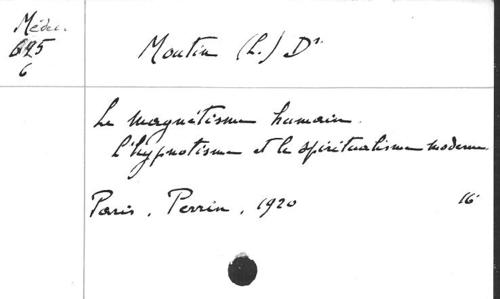 Médec.
625
6
Moutin (L.) Dr.
Le magnétisme humain.
L'hypnotisme et le spiritualisme moderne
Paris, Perrin, 1920 16